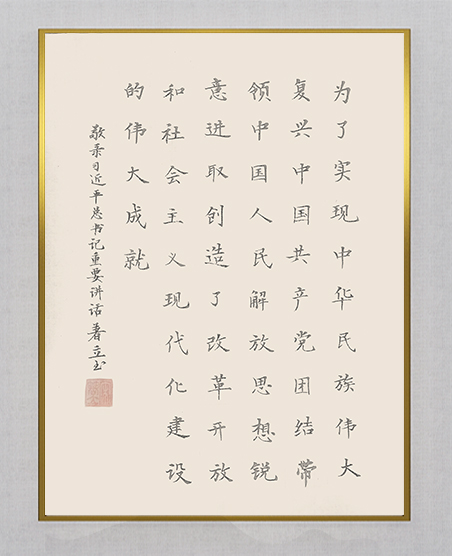 为了实现中华民族伟大
复兴中国共产党团结带
领中国人民解放思想锐
意进取创造了改革开放
和社会主义现代化建设
的伟大成就
敬录习近平总书记重要讲话 春立书